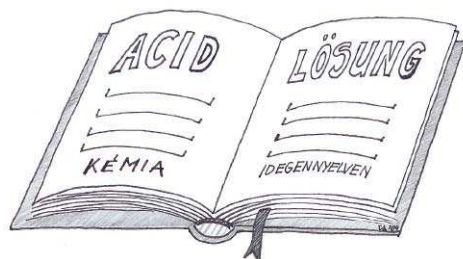 ACID
KÉMIA
LÖSUNG
IDEGENNYELVEN